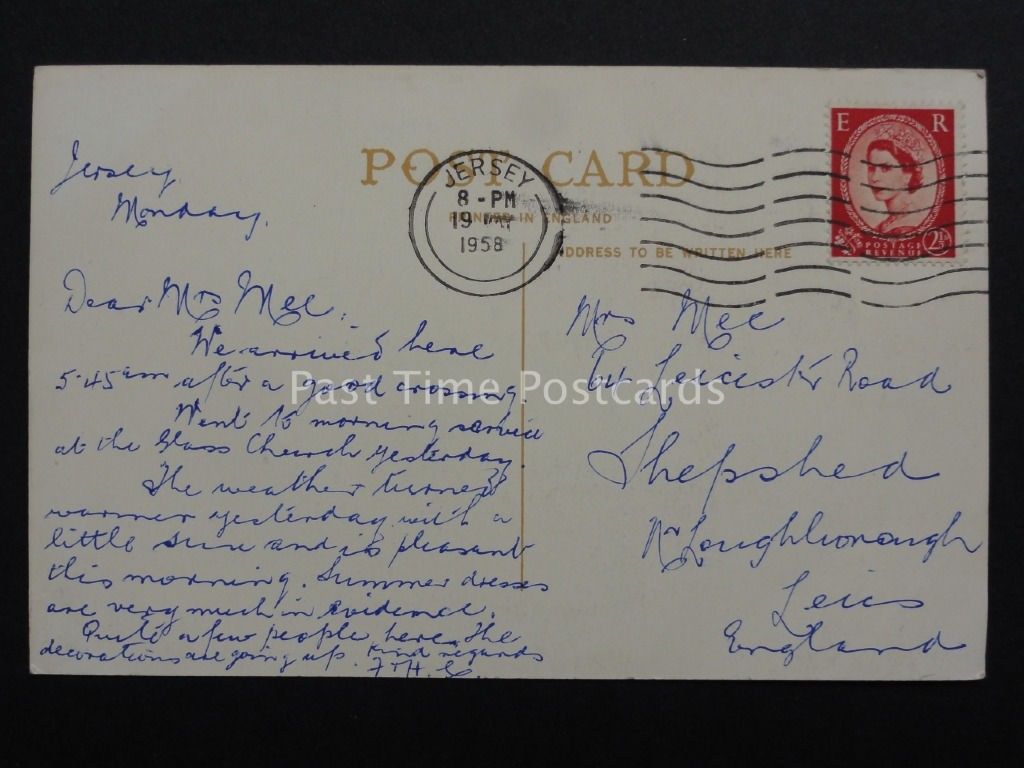 POST CARD
PRINTED IN ENGLAND
ADDRESS TO BE WRITTEN HERE
JERSEY
8 - PM
19 MAY
1958
E R
POSTAGE
REVENUE
2½
Jersey
Monday.
Dear Mrs Mee,
We arrived here
5.45am after a good crossing.
Went to morning service
at the Glass Church yesterday.
The weather turned
warmer yesterday with a
little sun and is pleasant
this morning. Summer dresses
are very much in evidence.
Quite a few people here. The
decorations are going up. Kind regards
Mrs Mee
64 Leicester Road
Shepshed
Nr Loughborough
Leics
England
Past Time Postcards